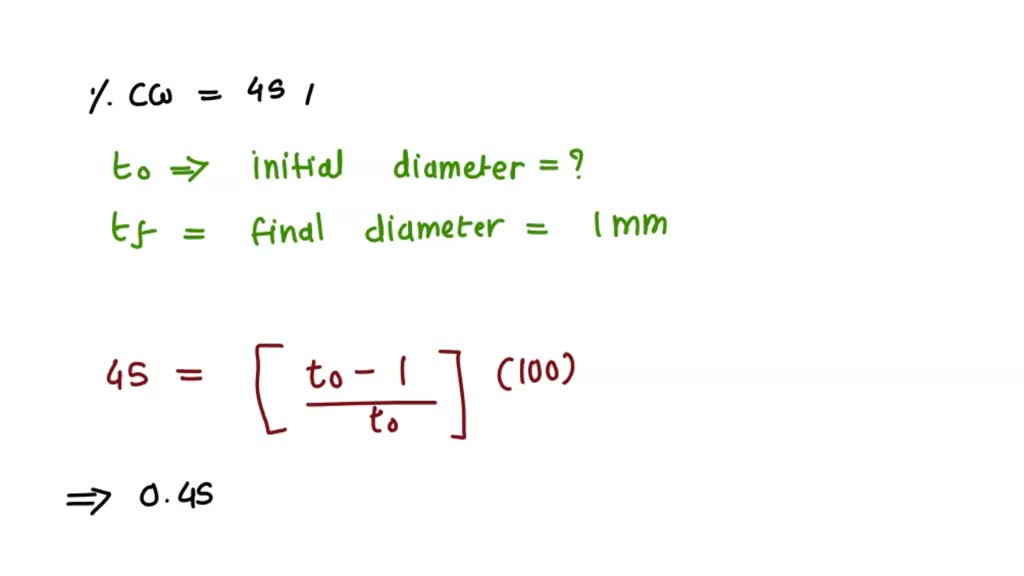 % CW = 45 ,
t₀ ⇒ initial diameter = ?
tf = final diameter = 1 mm
45 = [ t₀ - 1 / t₀ ] (100)
⇒ 0.45